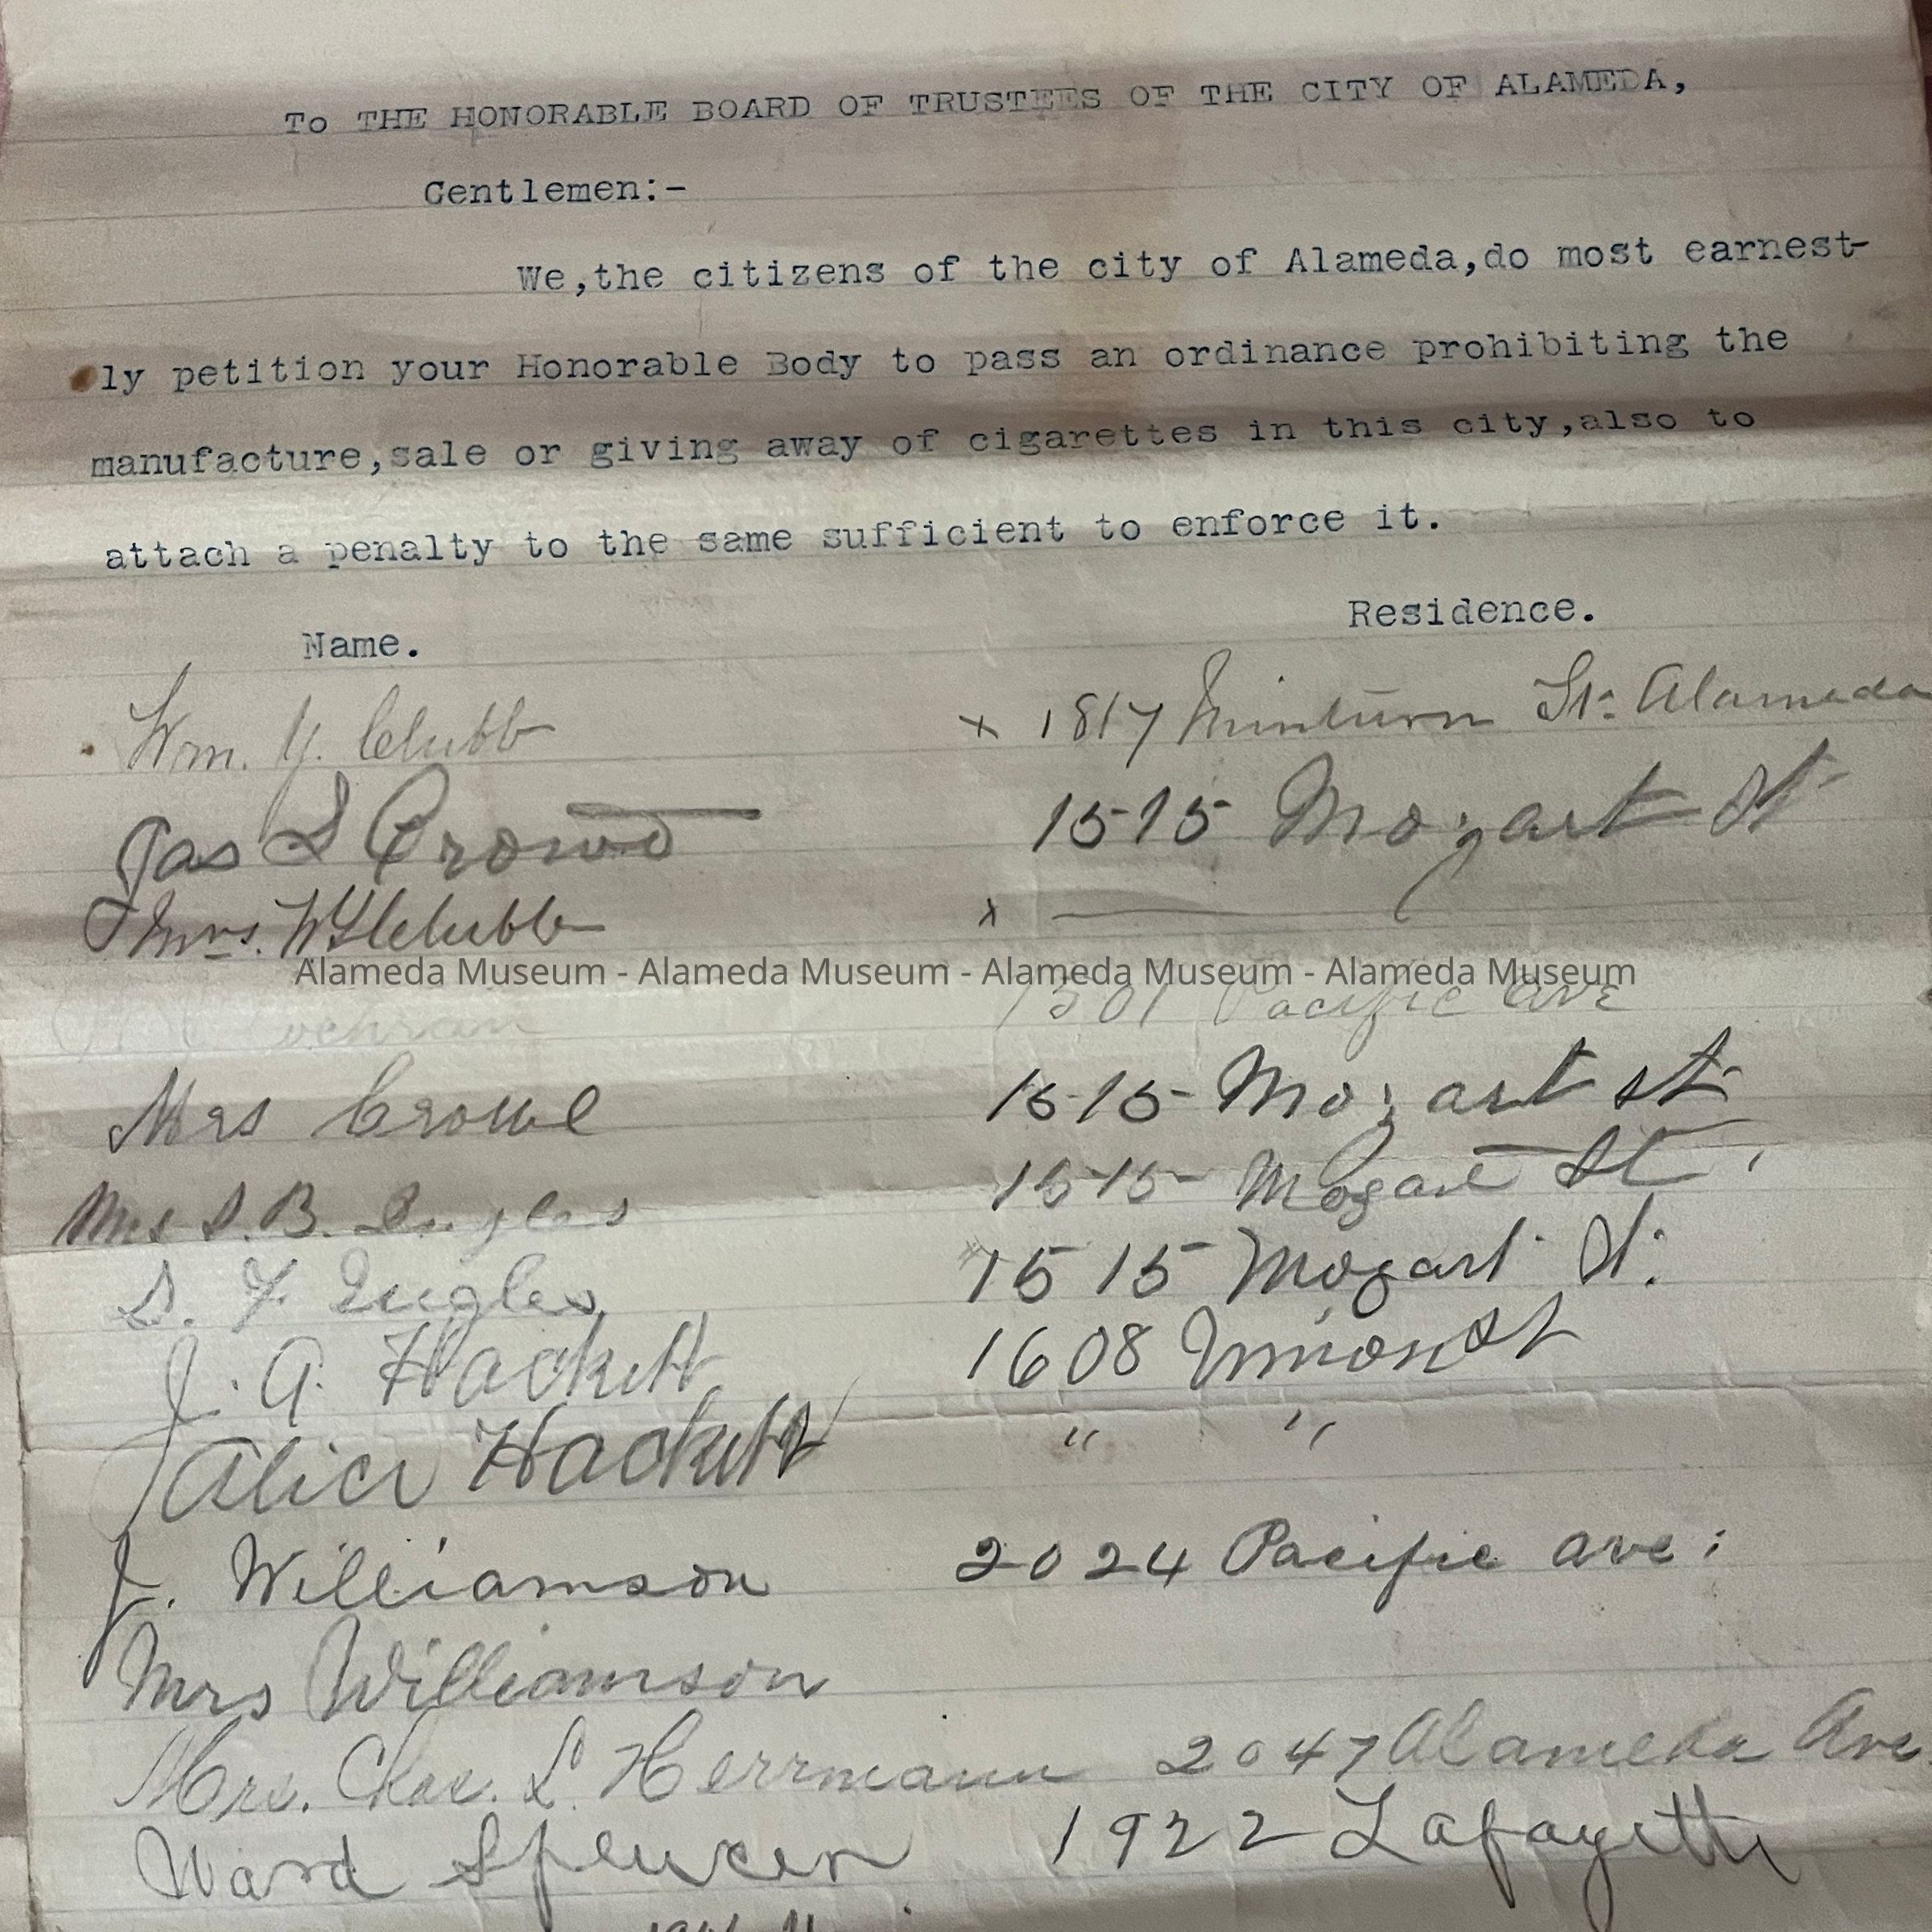 To THE HONORABLE BOARD OF TRUSTEES OF THE CITY OF ALAMEDA,
Gentlemen:-
We,the citizens of the city of Alameda,do most earnest-
ly petition your Honorable Body to pass an ordinance prohibiting the
manufacture,sale or giving away of cigarettes in this city,also to
attach a penalty to the same sufficient to enforce it.
Name. Residence.
Wm. Y. Clubb x 1817 Minturn St. Alameda
Jas S 1515 Mozart St
Mrs. W Y Clubb x
Alameda Museum - Alameda Museum - Alameda Museum - Alameda Museum
Cochran 1501 Pacific Ave
Mrs Crowe 1515 Mozart St.
Mrs S. B. Ingles 1515 Mozart St.
S. Y. Ingles 1515 Mozart St.
J. A. Hackett 1608 Union St
Alice Hackett " "
J. Williamson 2024 Pacific ave.
Mrs Williamson
Mrs. Chas. L. Herrmann 2047 Alameda Ave
Ward Spencer 1922 Lafayette